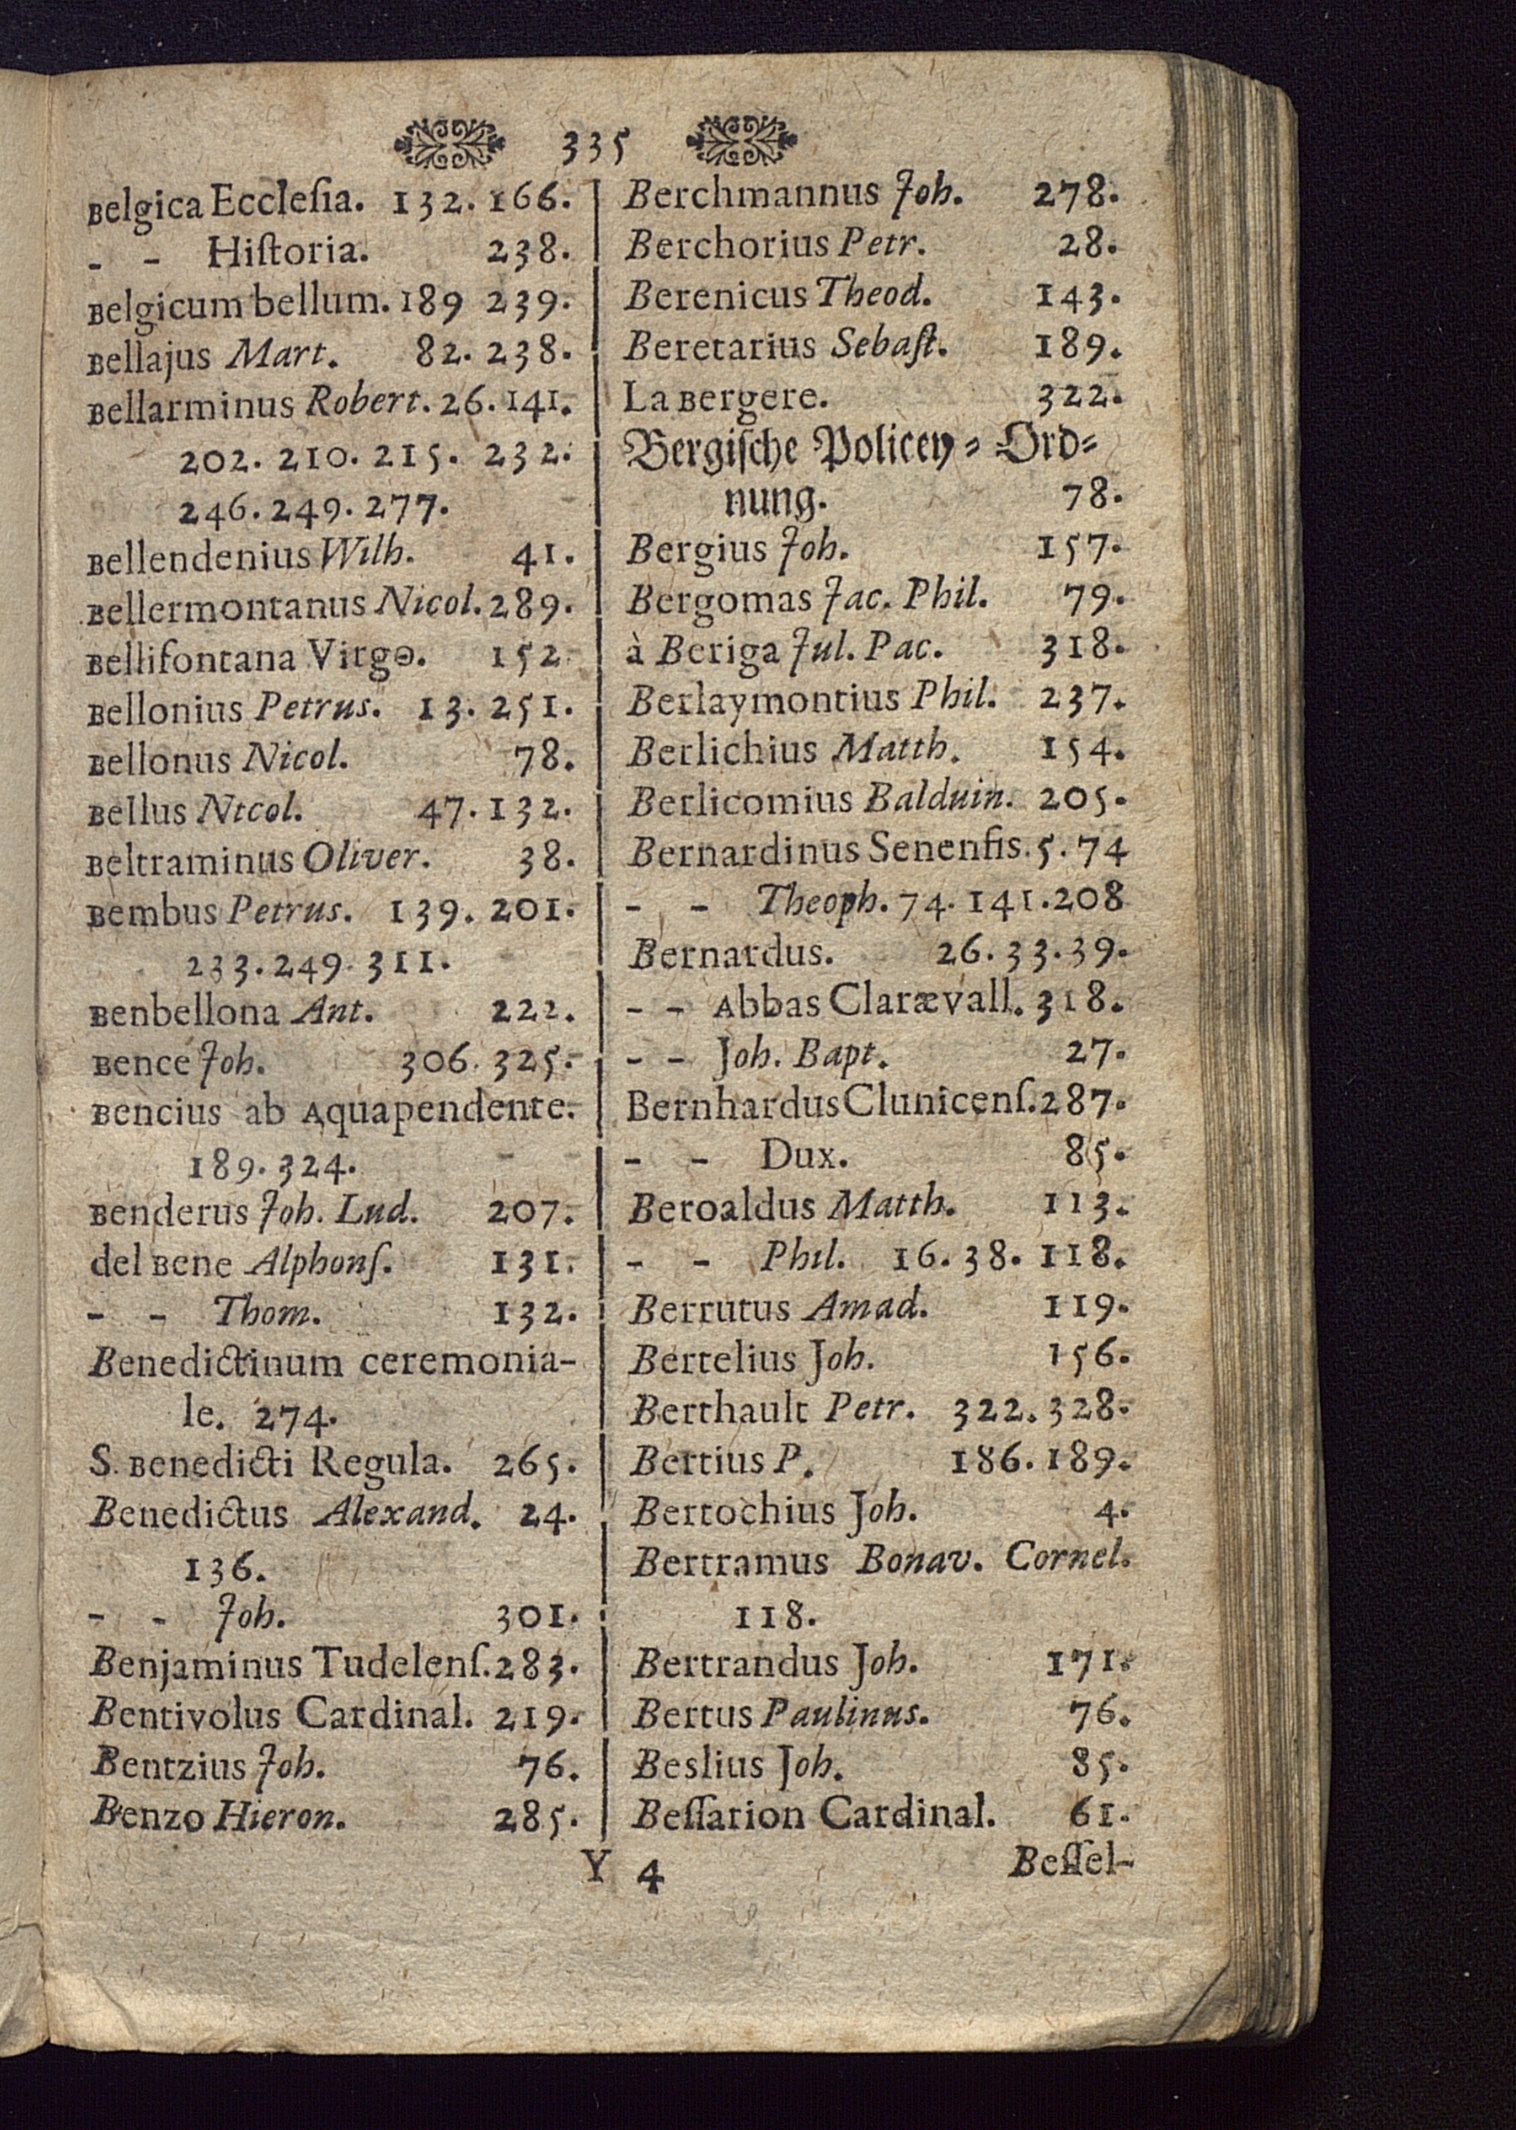 335
Belgica Ecclesia. 132. 166.
- - Historia. 238.
Belgicum bellum. 189 239.
Bellajus Mart. 82. 238.
Bellarminus Robert. 26. 141.
202. 210. 215. 232.
246. 249. 277.
Bellendenius Wilh. 41.
Bellermontanus Nicol. 289.
Bellifontana Virgo. 152
Bellonius Petrus. 13. 251.
Bellonus Nicol. 78.
Bellus Nicol. 47. 132.
Beltraminus Oliver. 38.
Bembus Petrus. 139. 201.
233. 249. 311.
Benbellona Ant. 222.
Bence Joh. 306. 325.
Bencius ab Aquapendente.
189. 324.
Benderus Joh. Lud. 207.
del Bene Alphonſ. 131.
- - Thom. 132.
Benedictinum ceremonia-
le. 274.
S. Benedicti Regula. 265.
Benedictus Alexand. 24.
136.
- - Joh. 301.
Benjaminus Tudelenſ. 283.
Bentivolus Cardinal. 219.
Bentzius Joh. 76.
Benzo Hieron. 285.
Berchmannus Joh. 278.
Berchorius Petr. 28.
Berenicus Theod. 143.
Beretarius Sebaſt. 189.
La Bergere. 322.
Bergiſche Policey-Ord-
nung. 78.
Bergius Joh. 157.
Bergomas Jac. Phil. 79.
à Beriga Jul. Pac. 318.
Berlaymontius Phil. 237.
Berlichius Matth. 154.
Berlicomius Balduin. 205.
Bernardinus Senenſis. 5. 74
- - Theoph. 74. 141. 208
Bernardus. 26. 33. 39.
- - Abbas Claræevall. 318.
- - Joh. Bapt. 27.
Bernhardus Clunicenſ. 287.
- - Dux. 85.
Beroaldus Matth. 113.
- - Phil. 16. 38. 118.
Berrutus Amad. 119.
Bertelius Joh. 156.
Berthault Petr. 322. 328.
Bertius P. 186. 189.
Bertochius Joh. 4.
Bertramus Bonav. Cornel.
118.
Bertrandus Joh. 171.
Bertus Paulinus. 76.
Beslius Joh. 85.
Beſſarion Cardinal. 61.
Y 4
Beſſel-